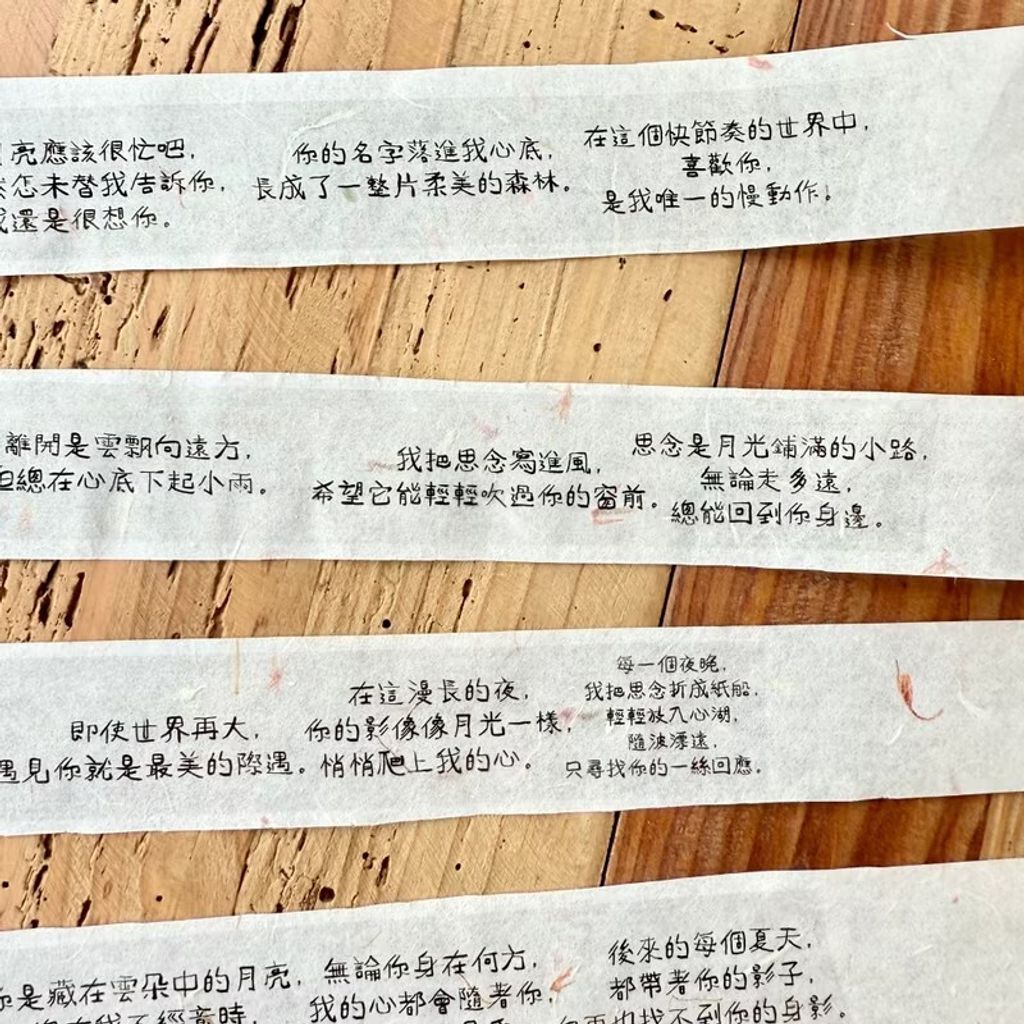 亮應該很忙吧，
怎未替我告訴你，
還是很想你。
你的名字落進我心底，
長成了一整片柔美的森林。
在這個快節奏的世界中，
喜歡你，
是我唯一的慢動作！
離開是雲飄向遠方，
但總在心底下起小雨。
我把思念寫進風，
希望它能輕輕吹過你的窗前。
思念是月光鋪滿的小路，
無論走多遠，
總能回到你身邊。
即使世界再大，
遇見你就是最美的際遇。
在這漫長的夜，
你的影像像月光一樣，
悄悄爬上我的心。
每一個夜晚，
我把思念折成紙船，
輕輕放入心湖，
隨波漂遠，
只尋找你的一絲回應。
你是藏在雲朵中的月亮，
在我不經意時，
無論你身在何方，
我的心都會隨著你，
後來的每個夏天，
都帶著你的影子，
再也找不到你的身影。